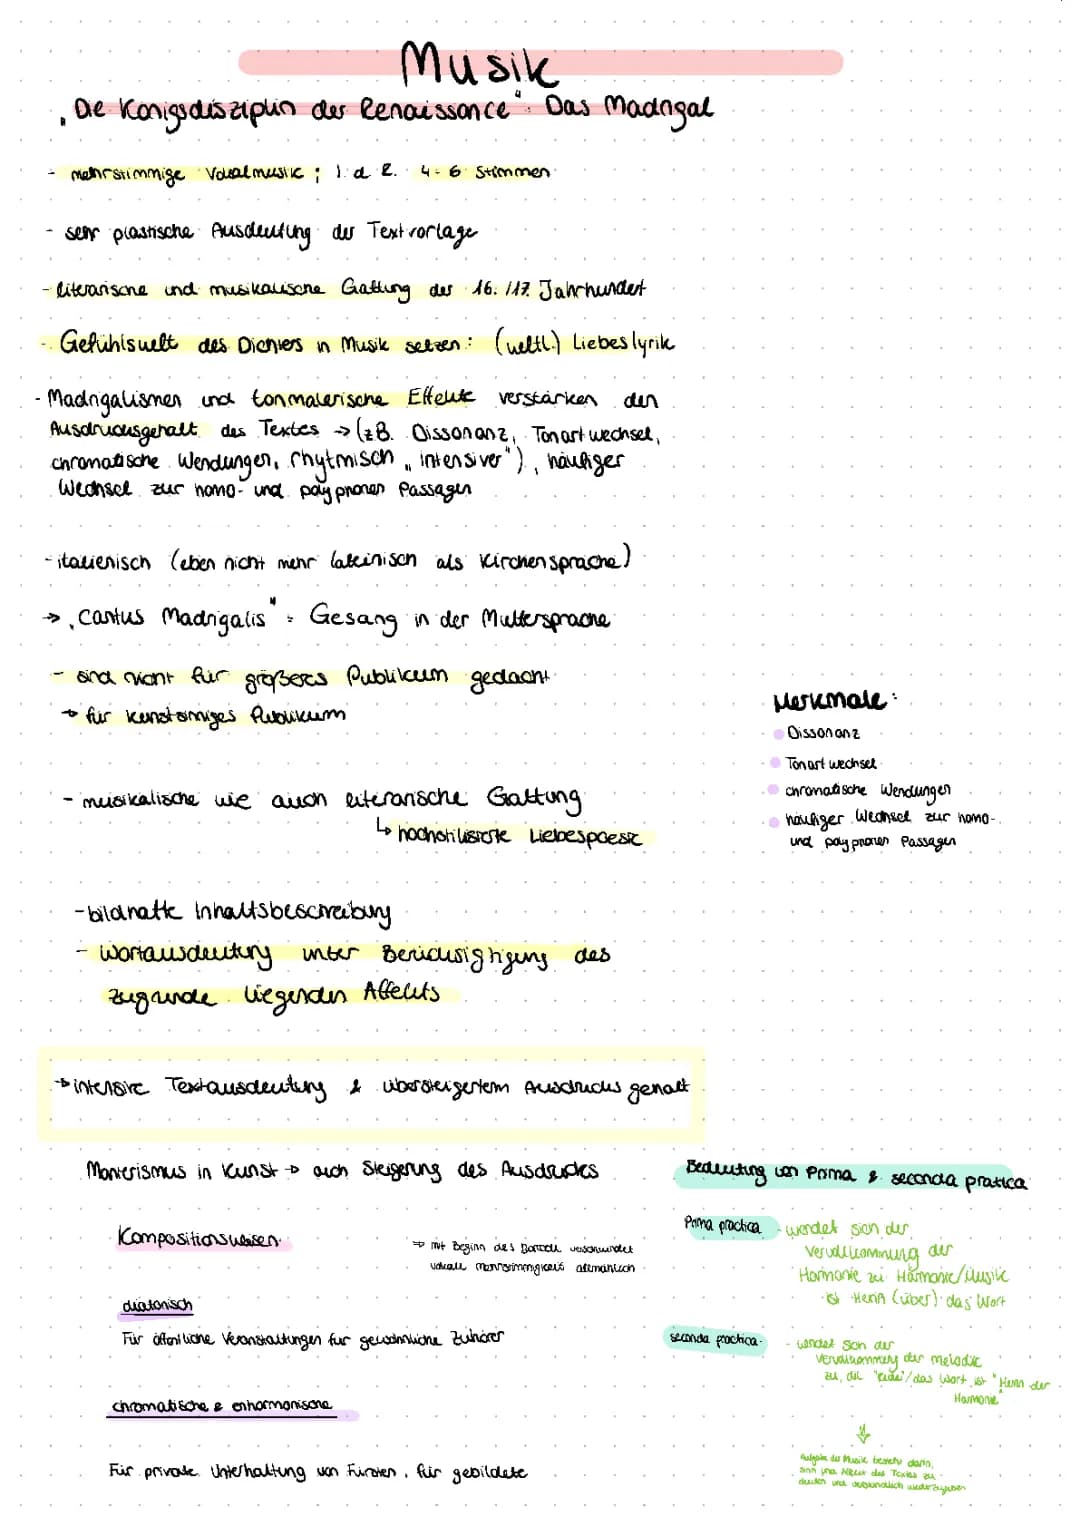 Musik
„Die Königsdisziplin der Renaissance": Das Madrigal
- mehrstimmige Vokalmusik ; i. d. R. 4-6 Stimmen
- sehr plastische Ausdeutung der Textvorlage
- literarische und musikalische Gattung der 16. /17. Jahrhundert
- Gefühlswelt des Dichters in Musik setzen: (weltl.) Liebeslyrik
- Madrigalismen und tonmalerische Effekte verstärken den
Ausdrucksgehalt des Textes → (z.B. Dissonanz, Tonartwechsel,
chromatische Wendungen, rhytmisch „intensiver"), häufiger
Wechsel zur homo- und polyphonen Passagen
- italienisch (eben nicht mehr lateinisch als Kirchensprache)
→ „Cantus Madrigalis" = Gesang in der Muttersprache
- sind nicht für größeres Publikum gedacht
→ für kunstsinniges Publikum
Merkmale:
Dissonanz
Tonartwechsel
chromatische Wendungen
häufiger Wechsel zur homo-
und polyphonen Passagen
- musikalische wie auch literarische Gattung
↳ hochstilisierte Liebespoesie
- bildhafte Inhaltsbeschreibung
- Wortausdeutung unter Berücksigtigung des
zugrunde liegenden Affekts
→ intensive Textausdeutung & übersteigertem Ausdrucksgehalt
Manierismus in Kunst → auch Steigerung des Ausdruckes
Kompositionsweisen
⇒ mit Beginn des Barock verschwindet
vokale Mehrstimmigkeit allmählich
diatonisch
Für öffentliche Veranstaltungen für gewöhnliche Zuhörer
chromatische & enharmonische
Für private Unterhaltung von Fürsten, für gebildete
Bedeutung von Prima & seconda pratica
Prima practica - wendet sich der
Vervollkommnung der
Harmonie zu Harmonie/Musik
ist Herrin (über) das Wort
seconda practica - wendet sich der
Vervollkommnung der Melodik
zu, die "Rede"/das Wort ist "Herrin der
Harmonie"
↓
Aufgabe der Musik besteht darin,
Sinn und Affekt des Textes zu
deuten und ausdrücklich wiederzugeben